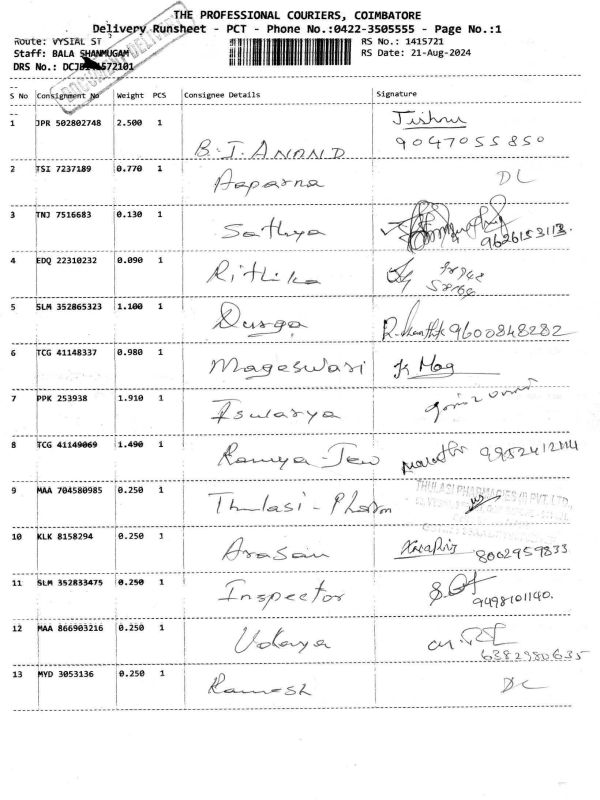 THE PROFESSIONAL COURIERS, COIMBATORE
Delivery Runsheet - PCT - Phone No.:0422-3505555 - Page No.:1
Route: VYSIAL ST
RS No.: 1415721
Staff: BALA SHANMUGAM
RS Date: 21-Aug-2024
DRS No.:
S No Consignment No Weight PCS Consignee Details Signature
1 JPR 502802748 2.500 1 B.J.ANAND
9047055850
2 TSI 7237189 0.770 1 Aaparna DL
3 TNJ 7516683 0.130 1 Sathya 9626153113.
4 EDQ 22310232 0.090 1 Rithika
5 SLM 352865323 1.100 1 Durga 9600848282
6 TCG 41148337 0.980 1 Mageswari K Mag
7 PPK 253938 1.910 1 Iswarya
8 TCG 41149069 1.490 1 Ramya-Jew
9 MAA 704580985 0.250 1 Thulasi-Pharm THULASI PHARMACIES (I) PVT. LTD.,
10 KLK 8158294 0.250 1 Arasan 8002959833
11 SLM 352833475 0.250 1 Inspector 9498101140.
12 MAA 866903216 0.250 1 Udaya 6382980635
13 MYD 3053136 0.250 1 Ramesh DL